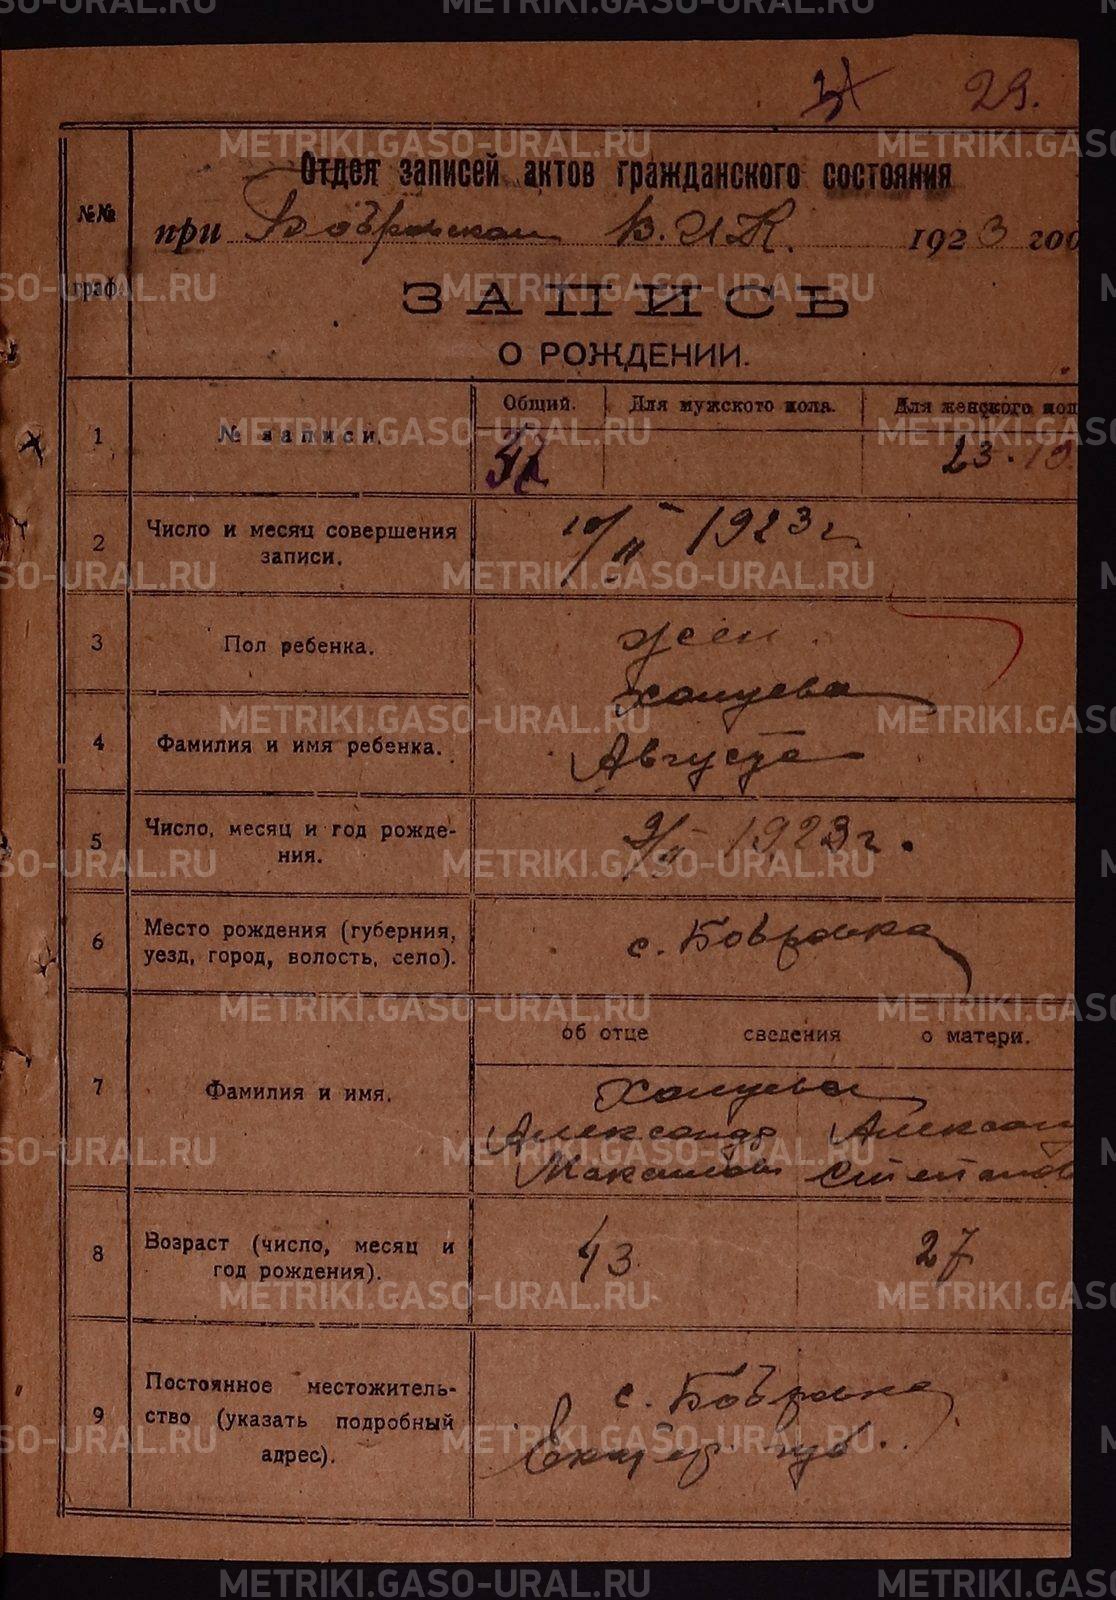 29.
Отдел записей актов гражданского состояния
№№ граф.
при Бобровском В.И.К. 1923 год
ЗАПИСЬ
О РОЖДЕНИИ.
1 № записи. Общий. Для мужского пола. Для женского пол
23
2 Число и месяц совершения записи. 10/II 1923 г.
3 Пол ребенка. жен.
4 Фамилия и имя ребенка.
Августа
5 Число, месяц и год рождения. 9/II 1923 г.
6 Место рождения (губерния, уезд, город, волость, село). с. Бобровка
об отце сведения о матери.
7 Фамилия и имя.
Александр Алексан
Максимов Степанов
8 Возраст (число, месяц и год рождения). 43 27
9 Постоянное местожительство (указать подробный адрес). с. Бобровка
Екатер. губ.
METRIKI.GASO-URAL.RU